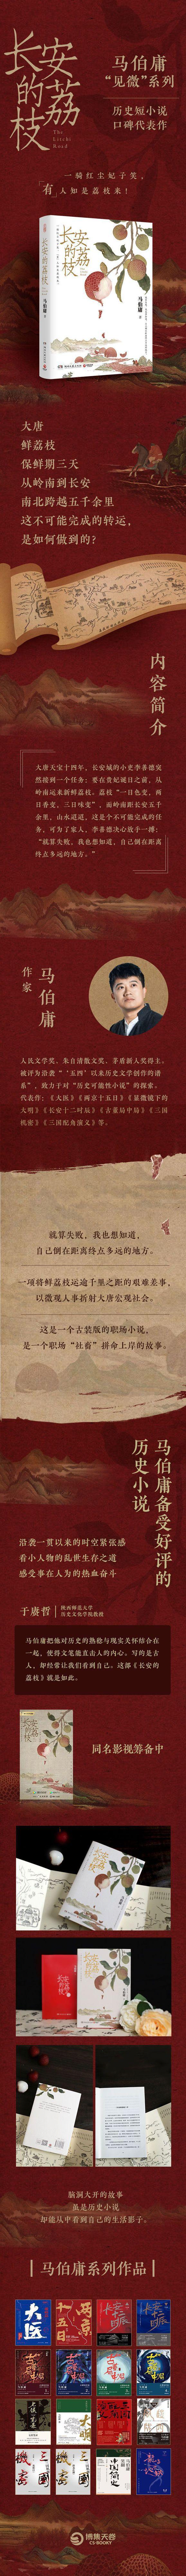 长安的荔枝
The
Litchi
Road
马伯庸
“见微”系列
历史短小说
口碑代表作
一骑红尘妃子笑，
「有」人知是荔枝来！
长安的荔枝
马伯庸
大唐
鲜荔枝
保鲜期三天
从岭南到长安
南北跨越五千余里
这不可能完成的转运，
是如何做到的？
内容简介
大唐天宝十四年，长安城的小吏李善德突
然接到一个任务：要在贵妃诞日之前，从
岭南运来新鲜荔枝。荔枝“一日色变，两
日香变，三日味变”，而岭南距长安五千
余里，山水迢迢，这是个不可能完成的任
务，可为了家人，李善德决心放手一搏：
“就算失败，我也想知道，自己倒在距离
终点多远的地方。”
作家
马伯庸
人民文学奖、朱自清散文奖、茅盾新人奖得主。
被评为沿袭“‘五四’以来历史文学创作的谱
系”，致力于对“历史可能性小说”的探索。
代表作：《大医》《两京十五日》《显微镜下的
大明》《长安十二时辰》《古董局中局》《三国
机密》《三国配角演义》等。
就算失败，我也想知道，
自己倒在距离终点多远的地方。
一项将鲜荔枝运逾千里之距的艰难差事，
以微观人事折射大唐宏观社会。
这是一个古装版的职场小说，
是一个职场“社畜”拼命上岸的故事。
马伯庸备受好评的
历史小说
沿袭一贯以来的时空紧张感
看小人物的乱世生存之道
感受事在人为的热血奋斗
于赓哲
陕西师范大学
历史文化学院教授
马伯庸把他对历史的熟稔与现实关怀结合在
一起，使得文笔能直击人的内心。写的是古
人，却经常让我们看到自己。这部《长安的
荔枝》就是如此。
长安的荔枝
同名影视筹备中
长安的荔枝
长安的荔枝
脑洞大开的故事
虽是历史小说
却能从中看到自己的生活影子。
马伯庸系列作品
大医
两京十五日
长安十二时辰
长安十二时辰
古董局中局
古董局中局
古董局中局
古董局中局
三国机密
三国机密
博集天卷
CS-BOOKY